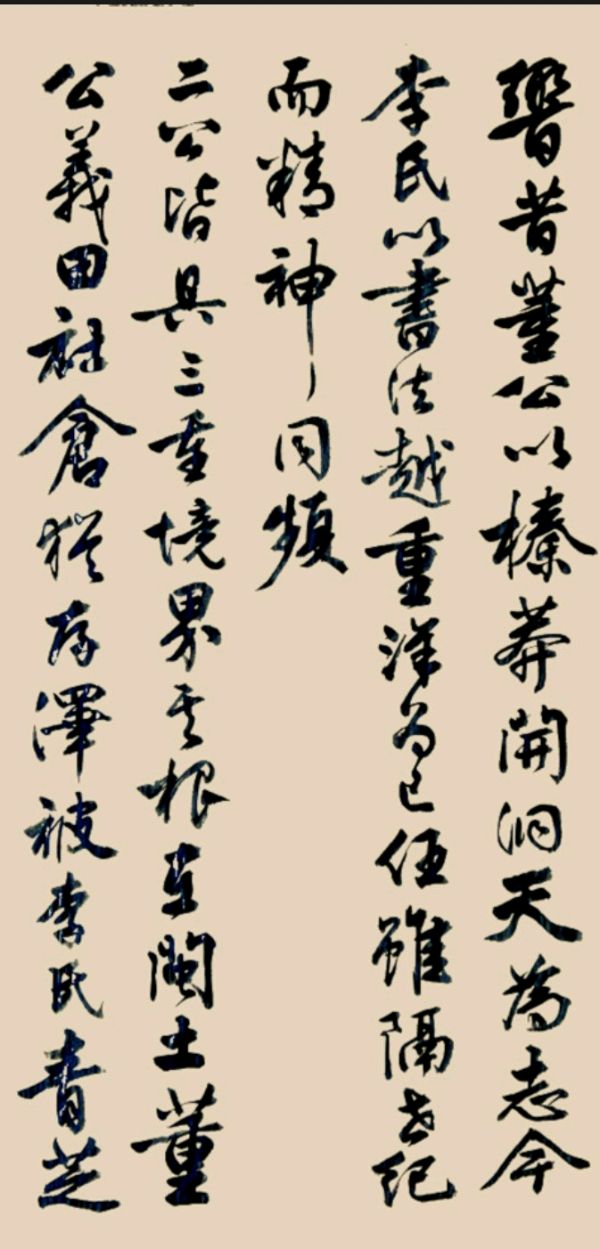 響昔董公以榛莽開洞天為志今
李氏以書法越重洋為己任雖隔世紀
而精神同頻
二公皆具三重境界其根在閩土董
公義田社倉猶存澤被李氏青芝